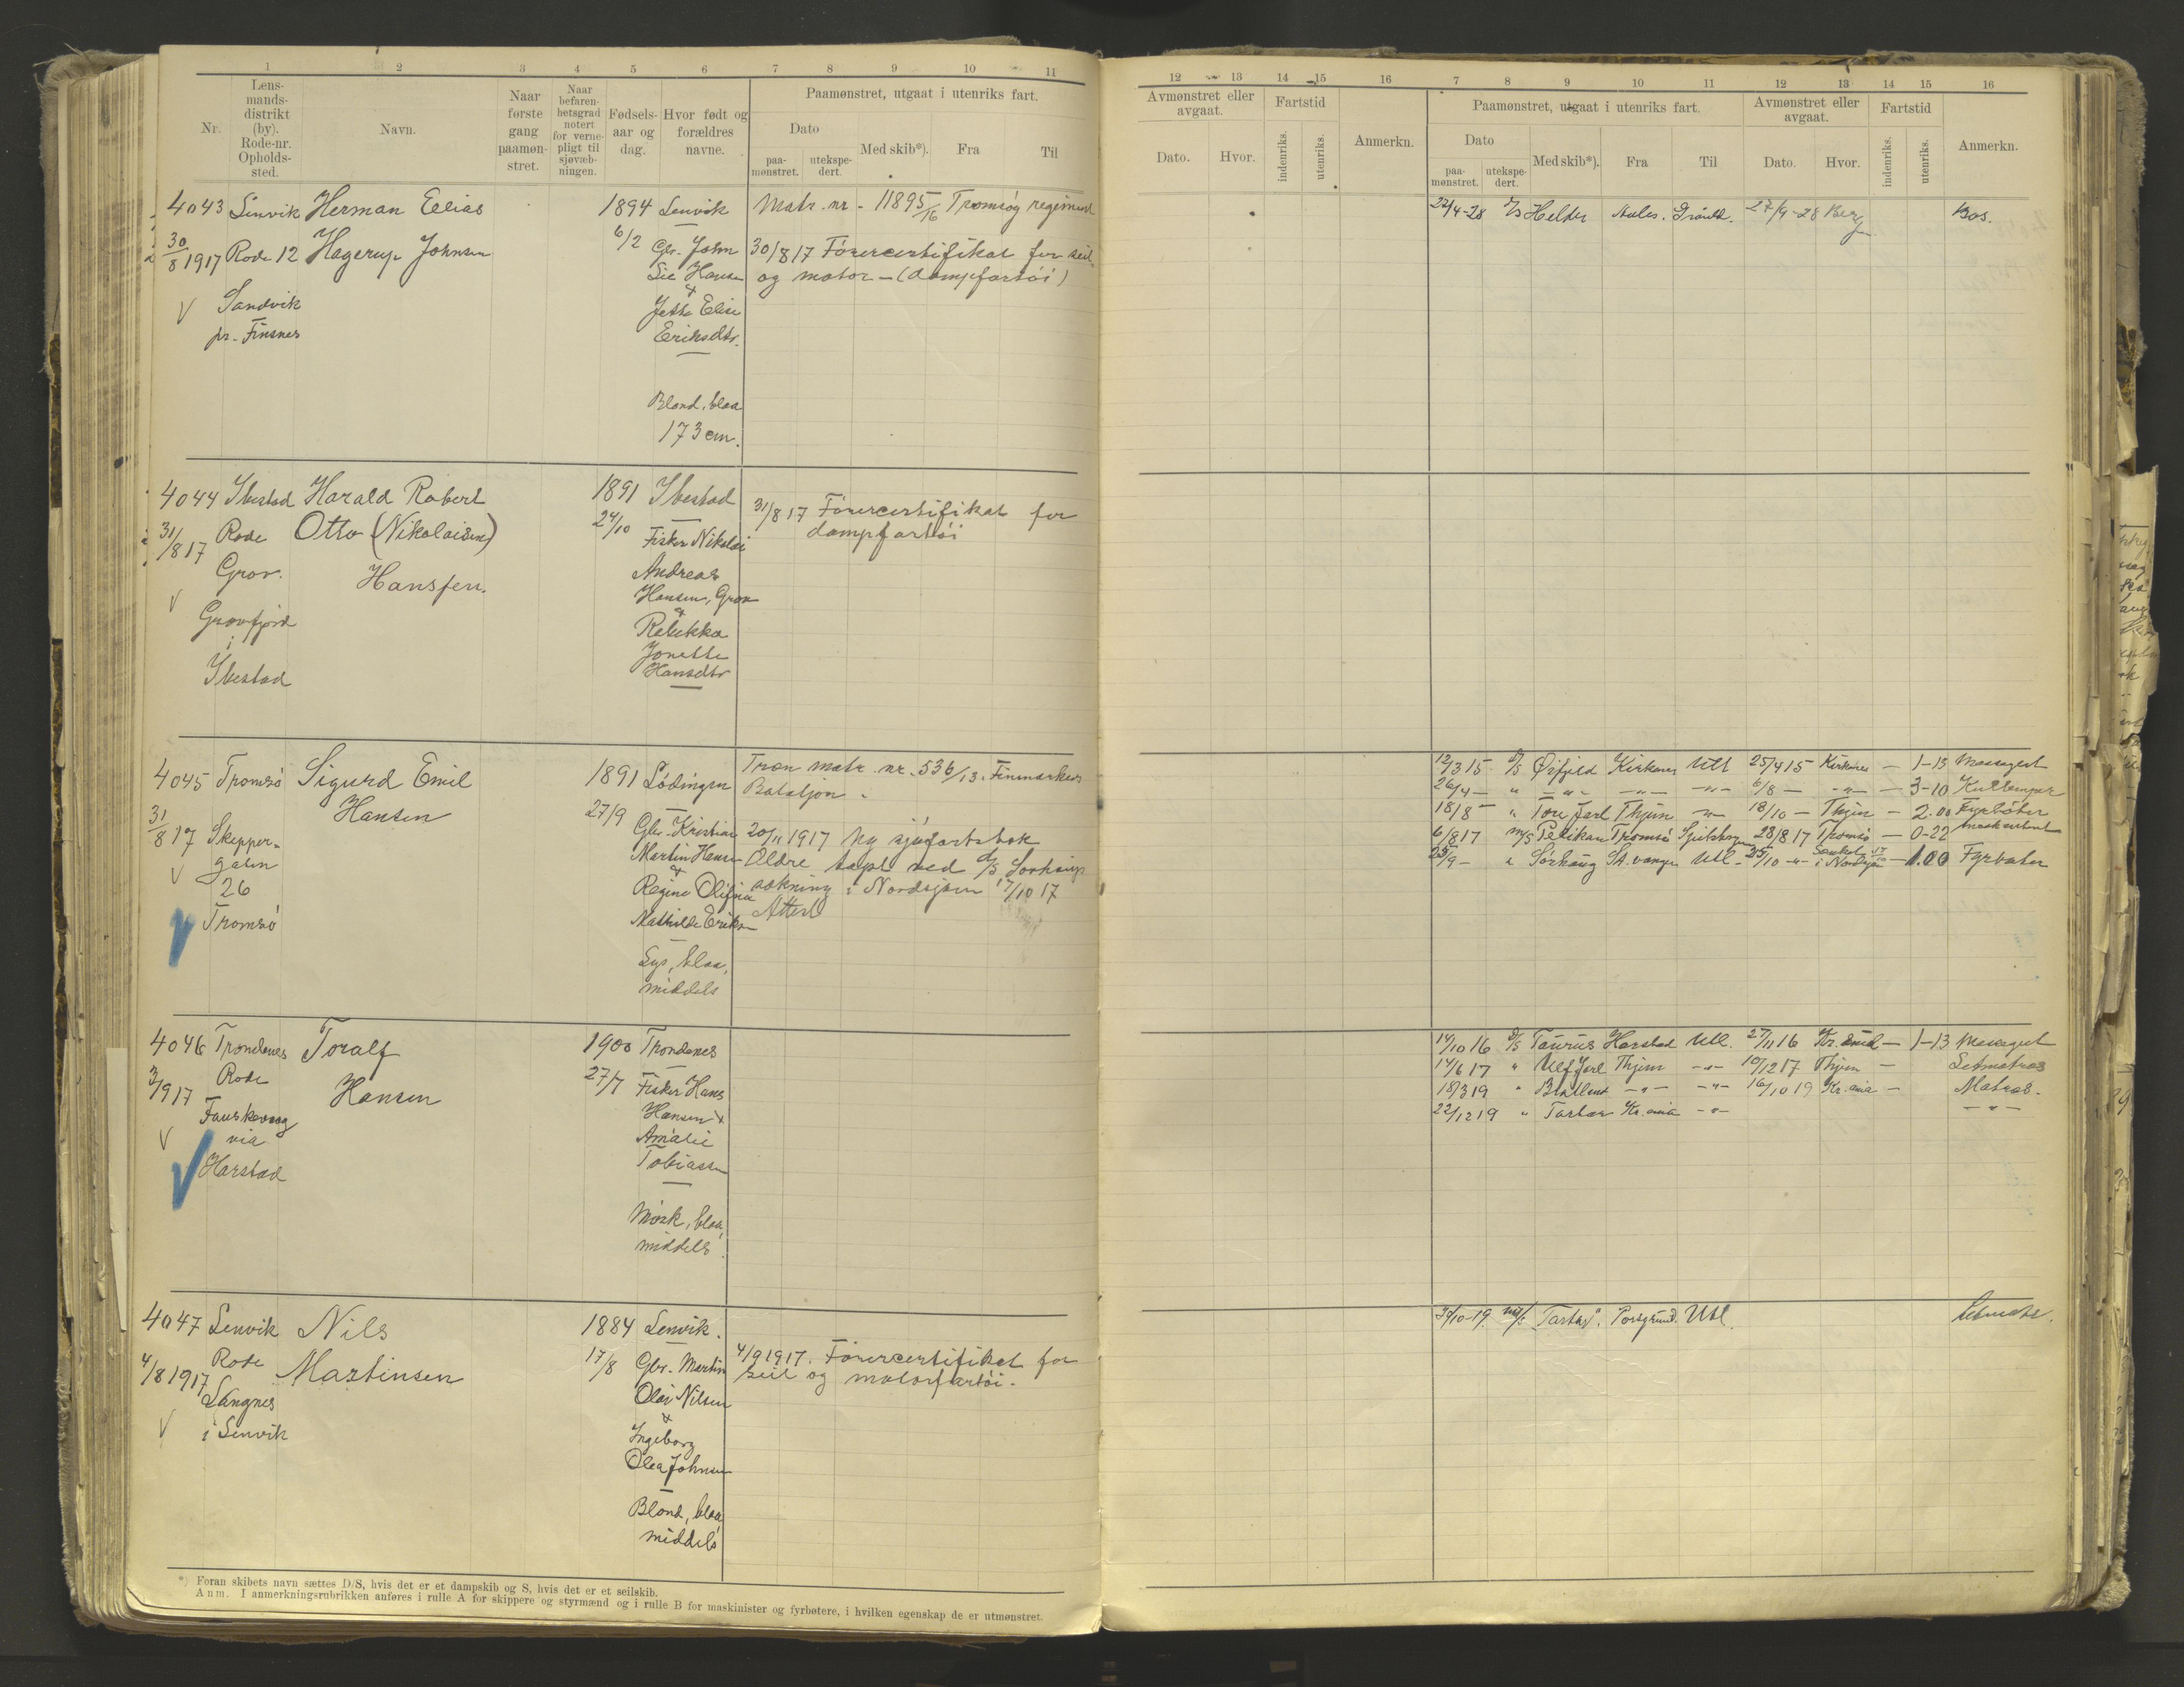 1 2 3 4 5 6 7 8 9 10 11
Nr.
Lens-
mands-
distrikt
(by).
Rode-nr.
Opholds-
sted.
Navn.
Naar
første
gang
paamøn-
stret.
Naar
befaren-
hetsgrad
notert
for verne-
pligt til
sjøvæb-
ningen.
Fødsels-
aar og
dag.
Hvor født og
forældres
navne.
Paamønstret, utgaat i utenriks fart.
Dato
paa-
mønstret.
utekspe-
dert.
Med skib*).
Fra
Til
4043 Lenvik Herman Eelias 1894 Lenvik Matr. nr - 11895/16 Tromsøg regiment
30/8 1917 Rode 12 Hagerup Johnsen 6/2 Gbr. John 30/8 17 Førercertifikat for seil
Hansen og motor - (dampfartøi)
&
Sandvik
pr. Finsnes
Jette Elise
Eriksdtr.
Blond, blaa
173 cm.
4044 Ibestad Harald Robert 1891 Ibestad
31/8 17 Rode Otto (Nikolaisen) 24/10 Fisker Nikolai 31/8 17 Førercertifikat for
dampfartøi
Grov. Hansen. Andreas
Hansen, Grov
&
Grovfjord
i
Ibestad
Rebekka
Jonette
Hansdtr
4045 Tromsø Sigurd Emil 1891 Lødingen Tron matr. nr. 536/13. Finmarkens
Hansen Bataljon.
31/8 17 Skepper- 27/9 Gbr. Kristian 20/11 1917 Ny sjøfartsbok
gaten Martin Hansen Ældre tapt ved d/s Sorhaug
&
26 Regine Olefine søkning i Nordsjøen 17/10 17
Tromsø Mathilde Eriks- Attest
Lys, blaa,
middels
4046 Trondenes Toralf 1900 Trondenes
3/9 17 Rode Hansen 27/7 Fisker Hans
Fauskevaag Hansen &
via Amalie
Harstad Tobiassen
Mørk, blaa,
middels.
4047 Lenvik Nils 1884 Lenvik.
4/8 1917 Rode Martinsen 17/8 Gbr. Martin 4/9 1917. Førercertifikat for
Langnes Olai Nilsen seil og motorfartøi.
&
i Lenvik Ingeborg
Olea Johnsen
Blond, blaa
middels
*) Foran skibets navn sættes D/S, hvis det er et dampskib og S, hvis det er et seilskib.
Anm. I anmerkningsrubrikken anføres i rulle A for skippere og styrmænd og i rulle B for maskinister og fyrbøtere, i hvilken egenskap de er utmønstret.
12 13 14 15 16 7 8 9 10 11 12 13 14 15 16
Avmønstret eller
avgaat.
Dato. Hvor.
Fartstid
indenriks. utenriks.
Anmerkn.
Paamønstret, utgaat i utenriks fart.
Dato
paa-
mønstret.
utekspe-
dert.
Med skib*). Fra Til
Avmønstret eller
avgaat.
Dato. Hvor.
Fartstid
indenriks. utenriks.
Anmerkn.
27/4-28 Helder Aales. 27/9-28 Berg Bas.
12/3 15 d/s Øifjeld Kirkenes Utl 25/4 15 Kirkenes - 1-13 Messegut
26/4 - " - " - - " - - " - 6/8 - - " - - 3-10 Kullemper
18/8 - " Tore Jarl Thjem - " - 18/10 - Thjem - 2.00 Fyrbøter
6/8 17 m/s Pelikan Tromsø Spitsbergen 28/8 17 Tromsø - 0-22 Maskinist
25/9 - " Sorhaug St.vanger Utl - 25/10 - " - Senket 17/10 i Nordsjøen - 1.00 Fyrbøter
14/10 16 d/s Taurus Harstad Utl. 27/11 16 Kr.sund - 1-13 Messegut
14/6 17 " Ulf Jarl Thjem - " - 10/12 17 Thjem - Letmatros
18/3 19 " - " - - " - 16/10 19 Kr.ania - Matros.
22/12 19 " Tartar Kr.ania - " - - " -
30/10-19. Tartar". Porsgrund. Utl. Letmatr.